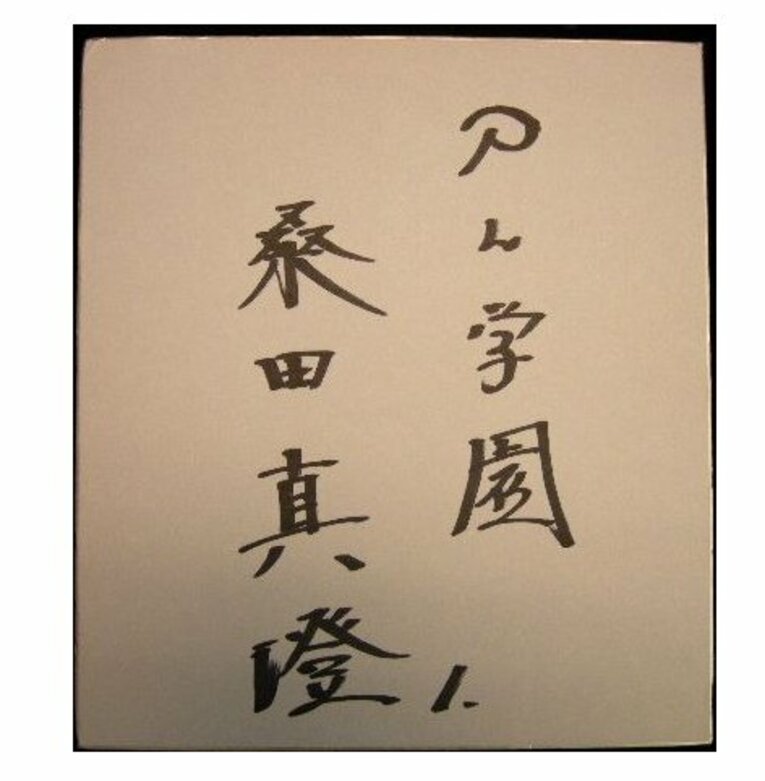 PL学園
桑田真澄 1.